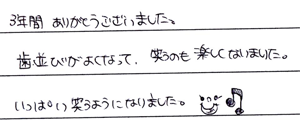 3年間 ありがとうございました。
歯並びがよくなって、笑うのも楽しくなりました。
いっぱい笑うようになりました。